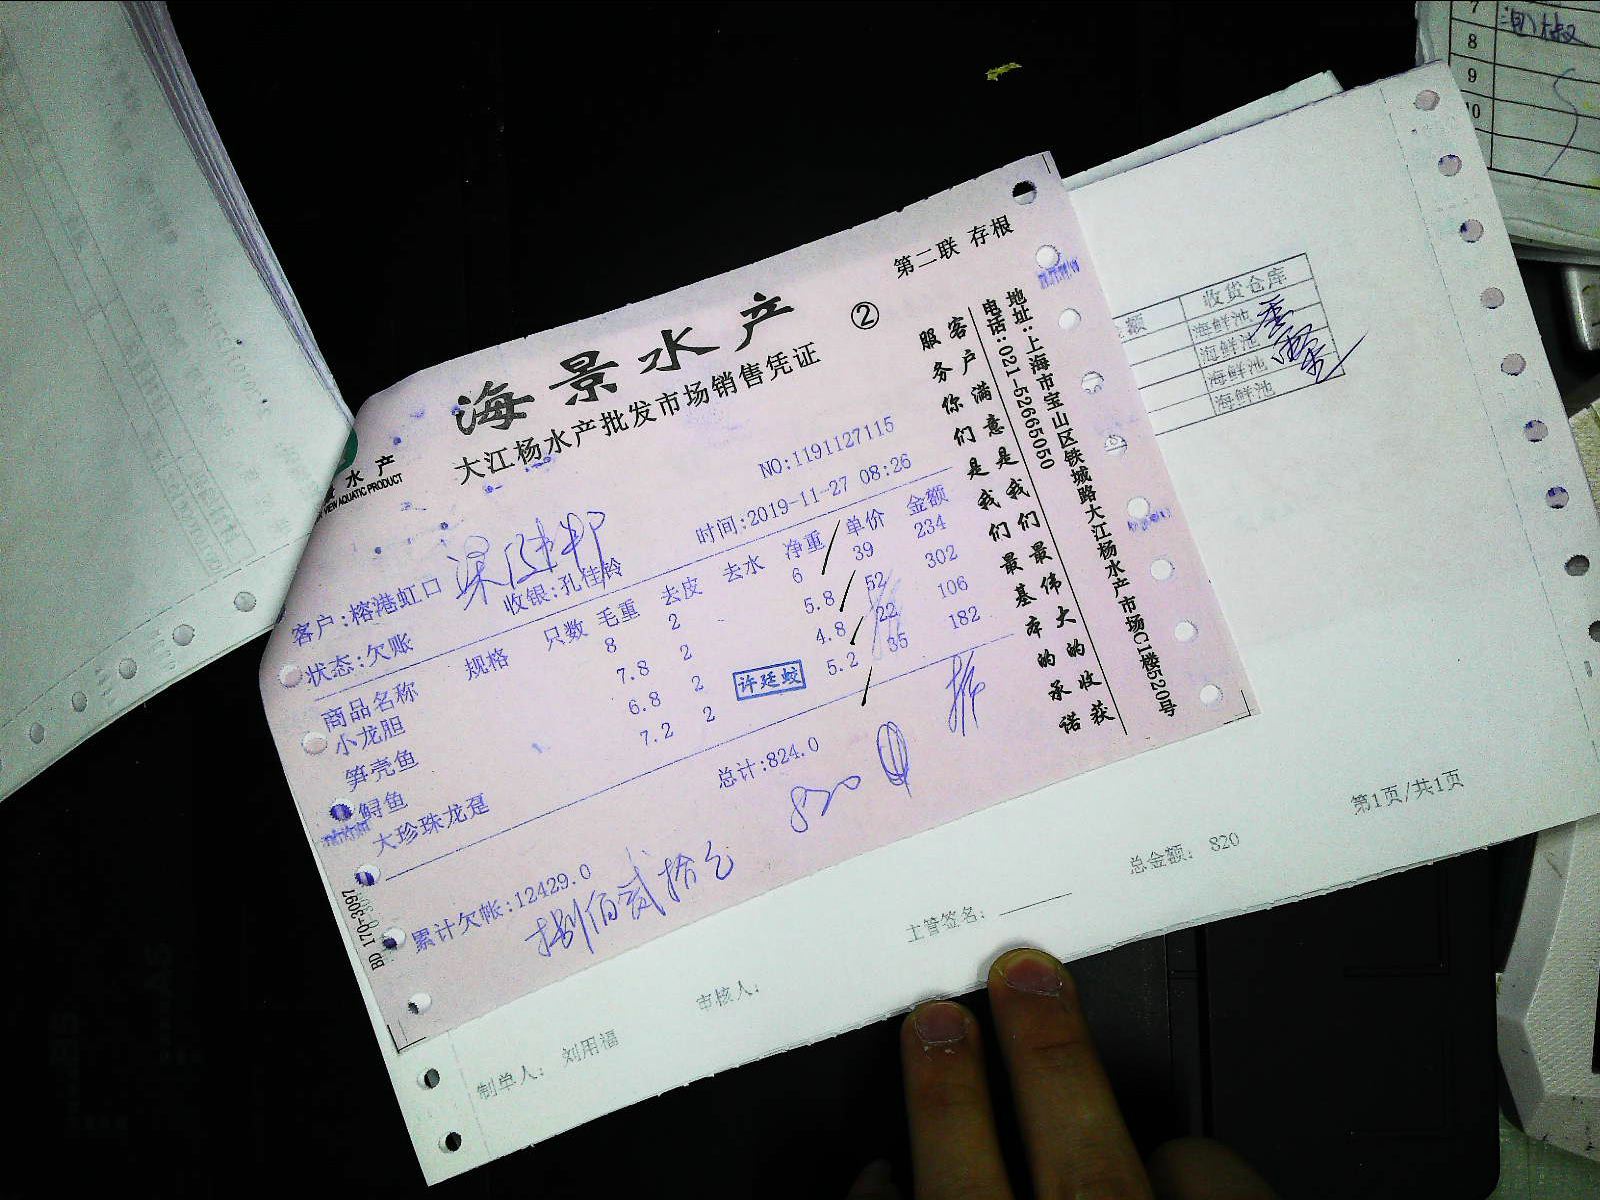 第二联 存根
海景水产
②
大江杨水产批发市场销售凭证
水产
VIEW AQUATIC PRODUCT
NO:1191127115
客户:榕港虹口
时间:2019-11-27 08:26
状态:欠账 收银:孔佳玲
商品名称 规格 只数 毛重 去皮 去水 净重 单价 金额
小龙胆 8 2 6 39 234
笋壳鱼 7.8 2 5.8 52 302
鲟鱼 6.8 2 4.8 22 106
大珍珠龙趸 7.2 2 5.2 35 182
许廷蛟
总计:824.0
820
累计欠帐:12429.0
捌佰贰拾元
客户满意是我们最伟大的收获
服务你们是我们最基本的承诺
地址:上海市宝山区铁城路大江杨水产市场C1楼520号
电话:021-52665050
BD 170-3097
额 收货仓库
海鲜池
海鲜池
海鲜池
海鲜池
第1页/共1页
总金额: 820
主管签名:
审核人:
制单人: 刘用福
7
8
9
10